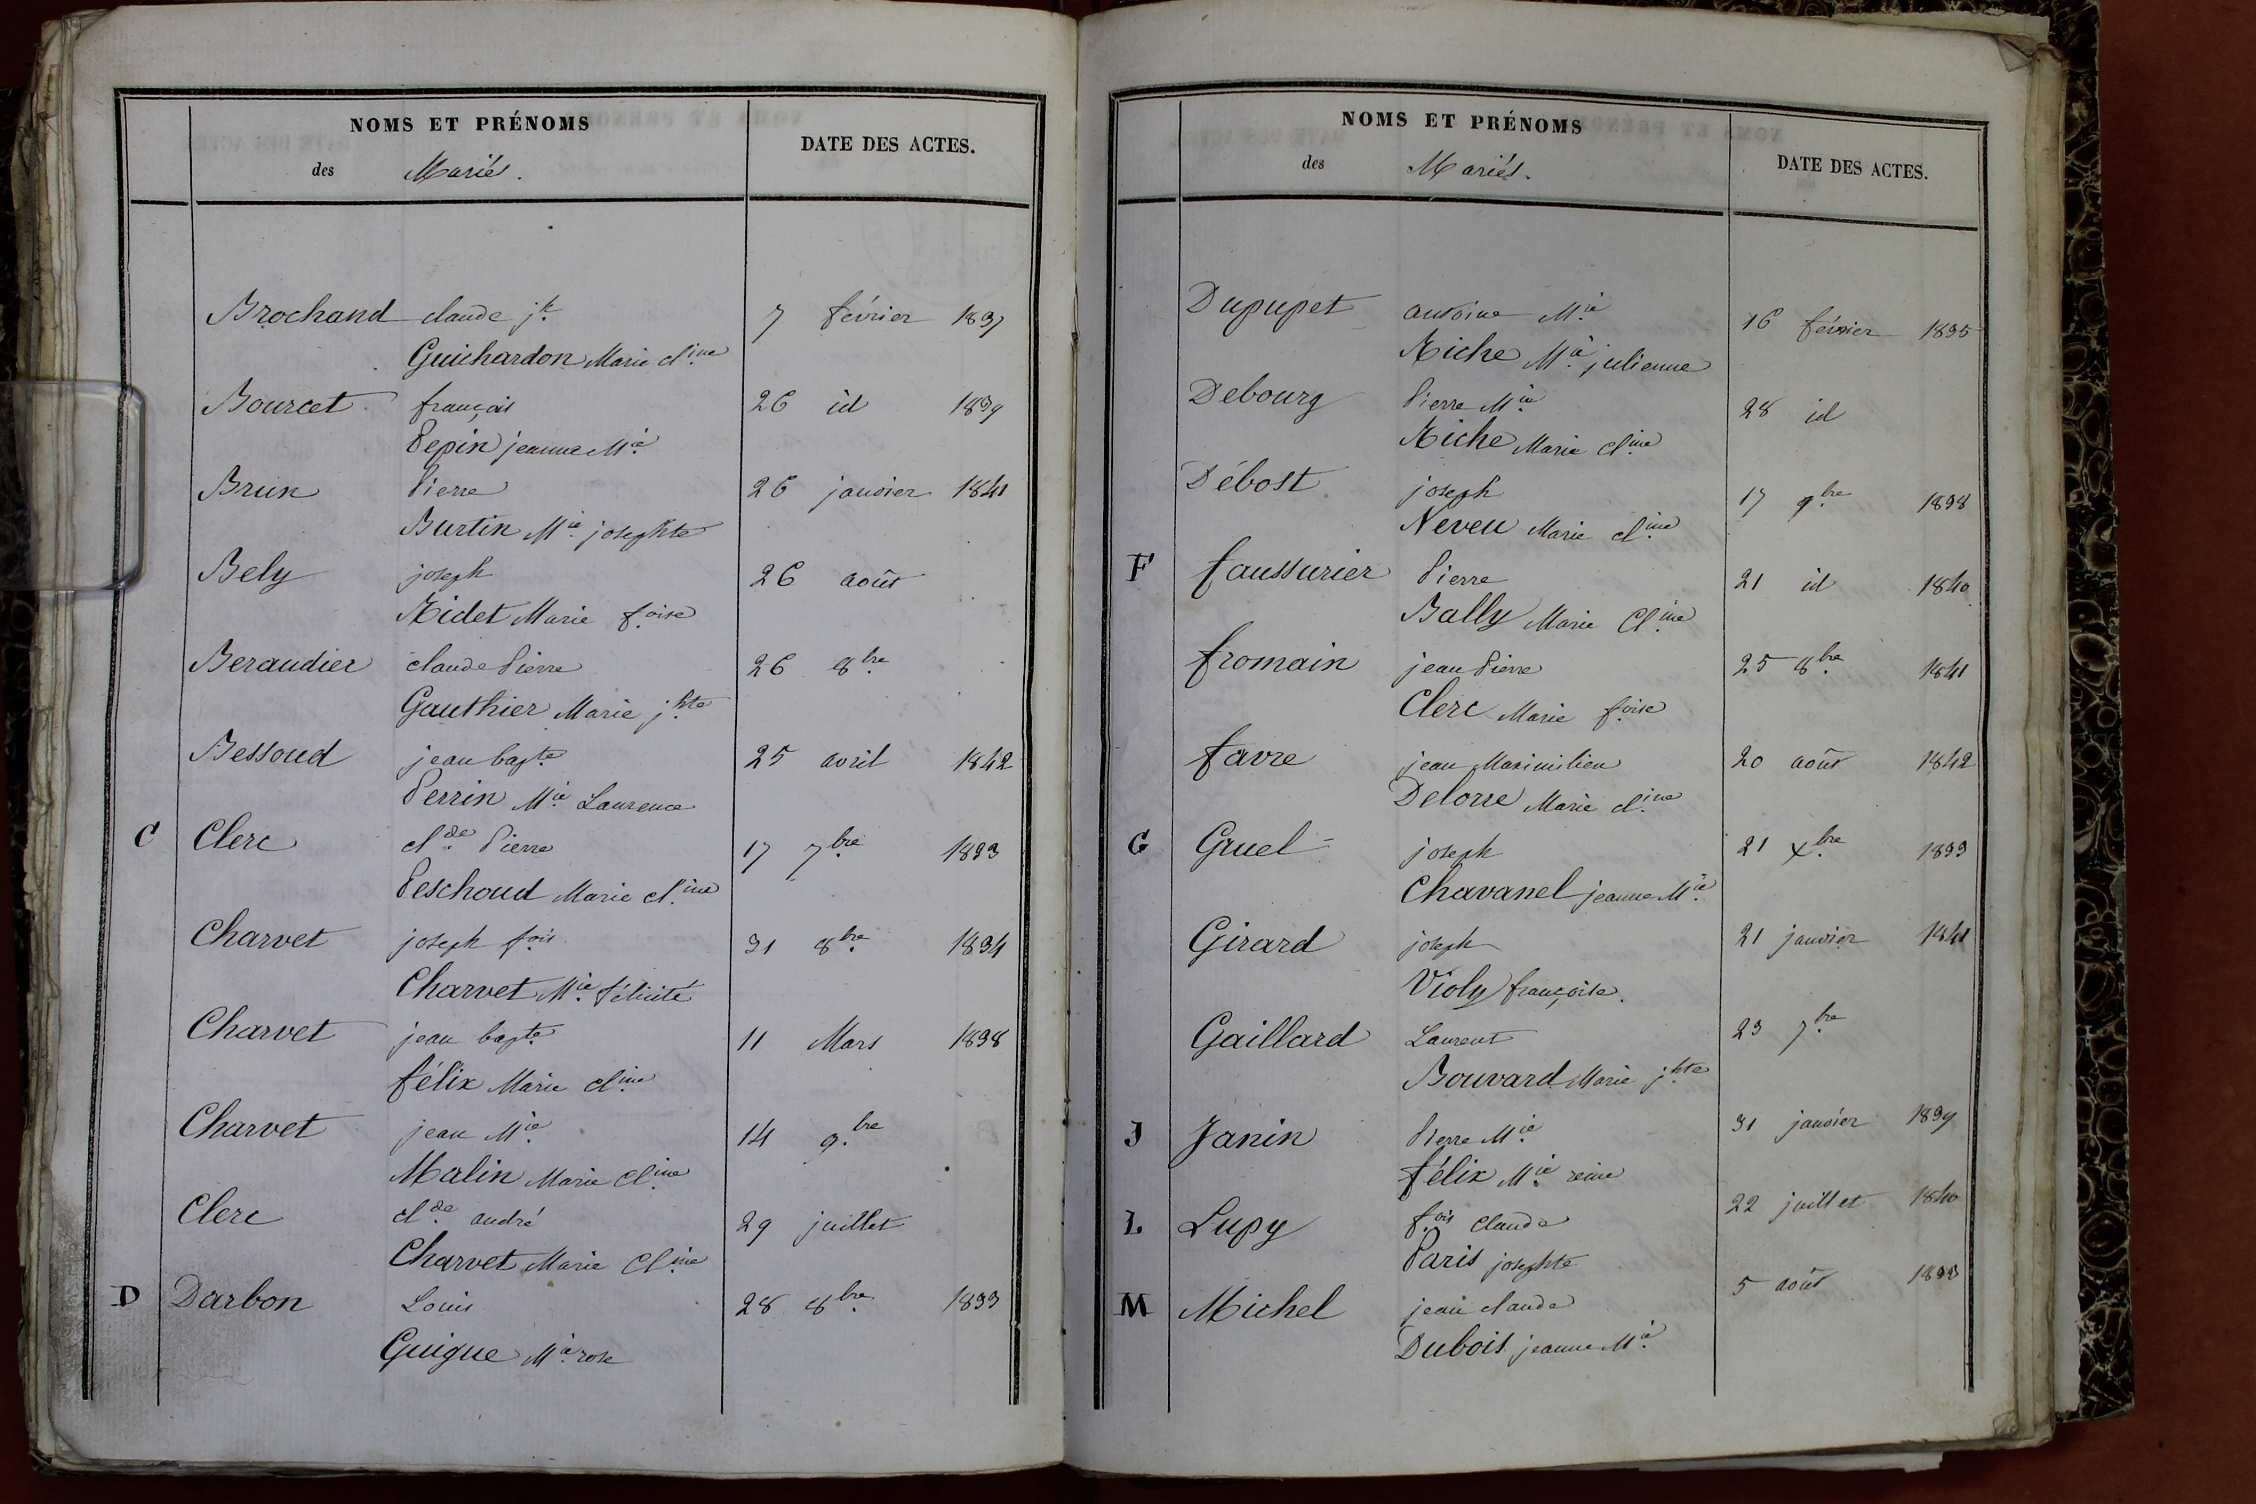 NOMS ET PRÉNOMS
des Mariés.
DATE DES ACTES.
Brochand claude jh. 7 février 1837
Guichardon Marie cl.ine
Bourcet françois 26 id 1839
Pepin jeanne M.ie
Brun Pierre 26 janvier 1841
Burtin M.ie josephte
Bely joseph 26 août
Ridet Marie f.oise
Beraudier claude Pierre 26 8.bre
Gauthier Marie j.hte
Bessoud jean bapte 25 avril 1842
Perrin M.ie Laurence
C Clerc cl.de Pierre 17 7.bre 1833
Peschoud Marie cl.ine
Charvet joseph f.ois 31 8.bre 1834
Charvet M.ie félicité
Charvet jean bapte 11 Mars 1838
félix Marie cl.ine
Charvet jean M.ie 14 9.bre
Malin Marie Cl.ine
Clerc cl.de andré 29 juillet
Charvet Marie Cl.ine
D Darbon Louis 28 8.bre 1833
Guigue M.ie rose
NOMS ET PRÉNOMS
des Mariés.
DATE DES ACTES.
Dupupet antoine M.ie 16 février 1835
Riche M.ie julienne
Debourg Pierre M.ie 28 id
Riche Marie cl.ine
Débost joseph 17 9.bre 1838
Neveu Marie cl.ine
F faussurier Pierre 21 id 1840
Bally Marie Cl.ine
fromain jean Pierre 25 8.bre 1841
Clerc Marie f.oise
favre jean Maximilien 20 août 1842
Delorre Marie cl.ine
G Gruel joseph 21 x.bre 1833
Chavanel jeanne M.ie
Girard joseph 21 janvier 1841
Violy françoise.
Gaillard Laurent 23 7.bre
Bouvard Marie j.hte
J Janin Pierre M.ie 31 janvier 1839
félix M.ie reine
L Lupy f.ois claude 22 juillet 1840
Paris josephte
M Michel jean claude 5 août 1833
Dubois jeanne M.ie